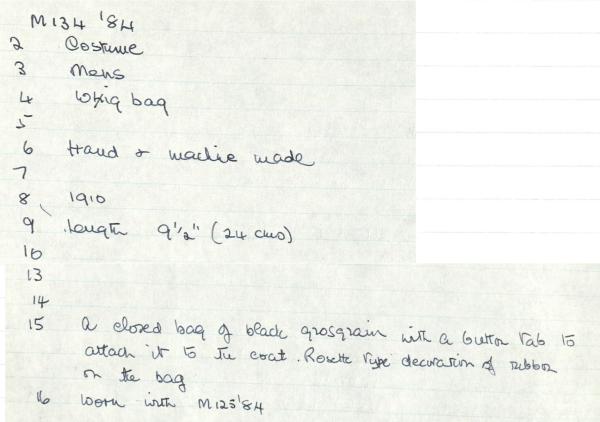 M134 '84
2 Costume
3 Mens
4 Whig bag
5
6 Hand & machie made
7
8 1910
9 Length 9½" (24 cms)
10
13
14
15 A closed bag of black grosgrain with a button tab to
attach it to the coat. Rosette type decoration of ribbon
on the bag
16 Worn with M125'84